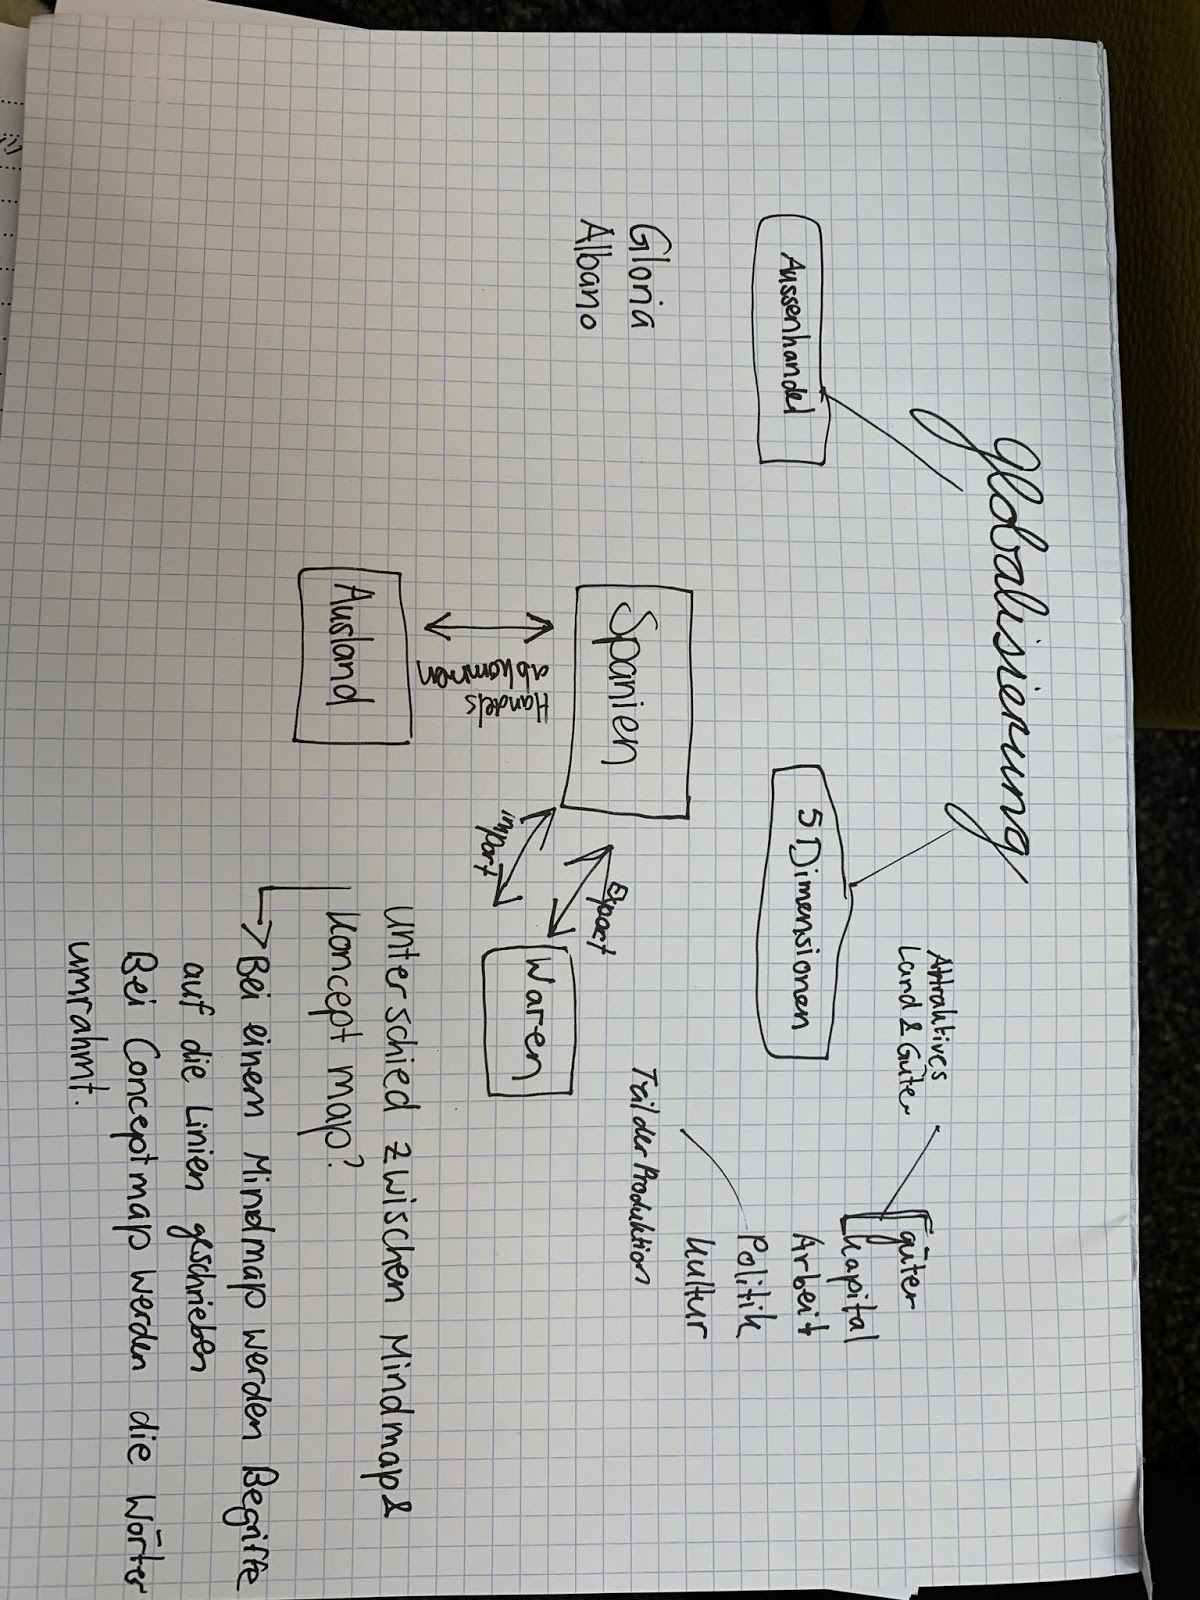 Globalisierung
Aussenhandel
5 Dimensionen
Attraktives
Land & Güter
güter
Kapital
Arbeit
Politik
Kultur
Teil der Produktion
Gloria
Albano
Spanien
Export
import
Waren
Handels
abkommen
Ausland
Unterschied zwischen Mindmap &
Koncept map?
Bei einem Mindmap werden Begriffe
auf die Linien geschrieben
Bei Conceptmap werden die Wörter
umrahmt.